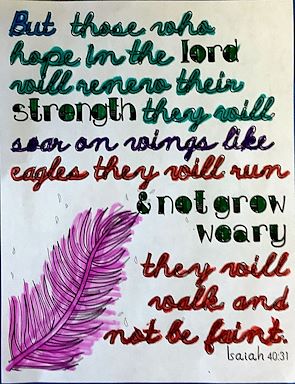 But those who
hope in the lord
will renew their
strength they will
soar on wings like
eagles they will run
& not grow
weary
they will
walk and
not be faint.
Isaiah 40:31